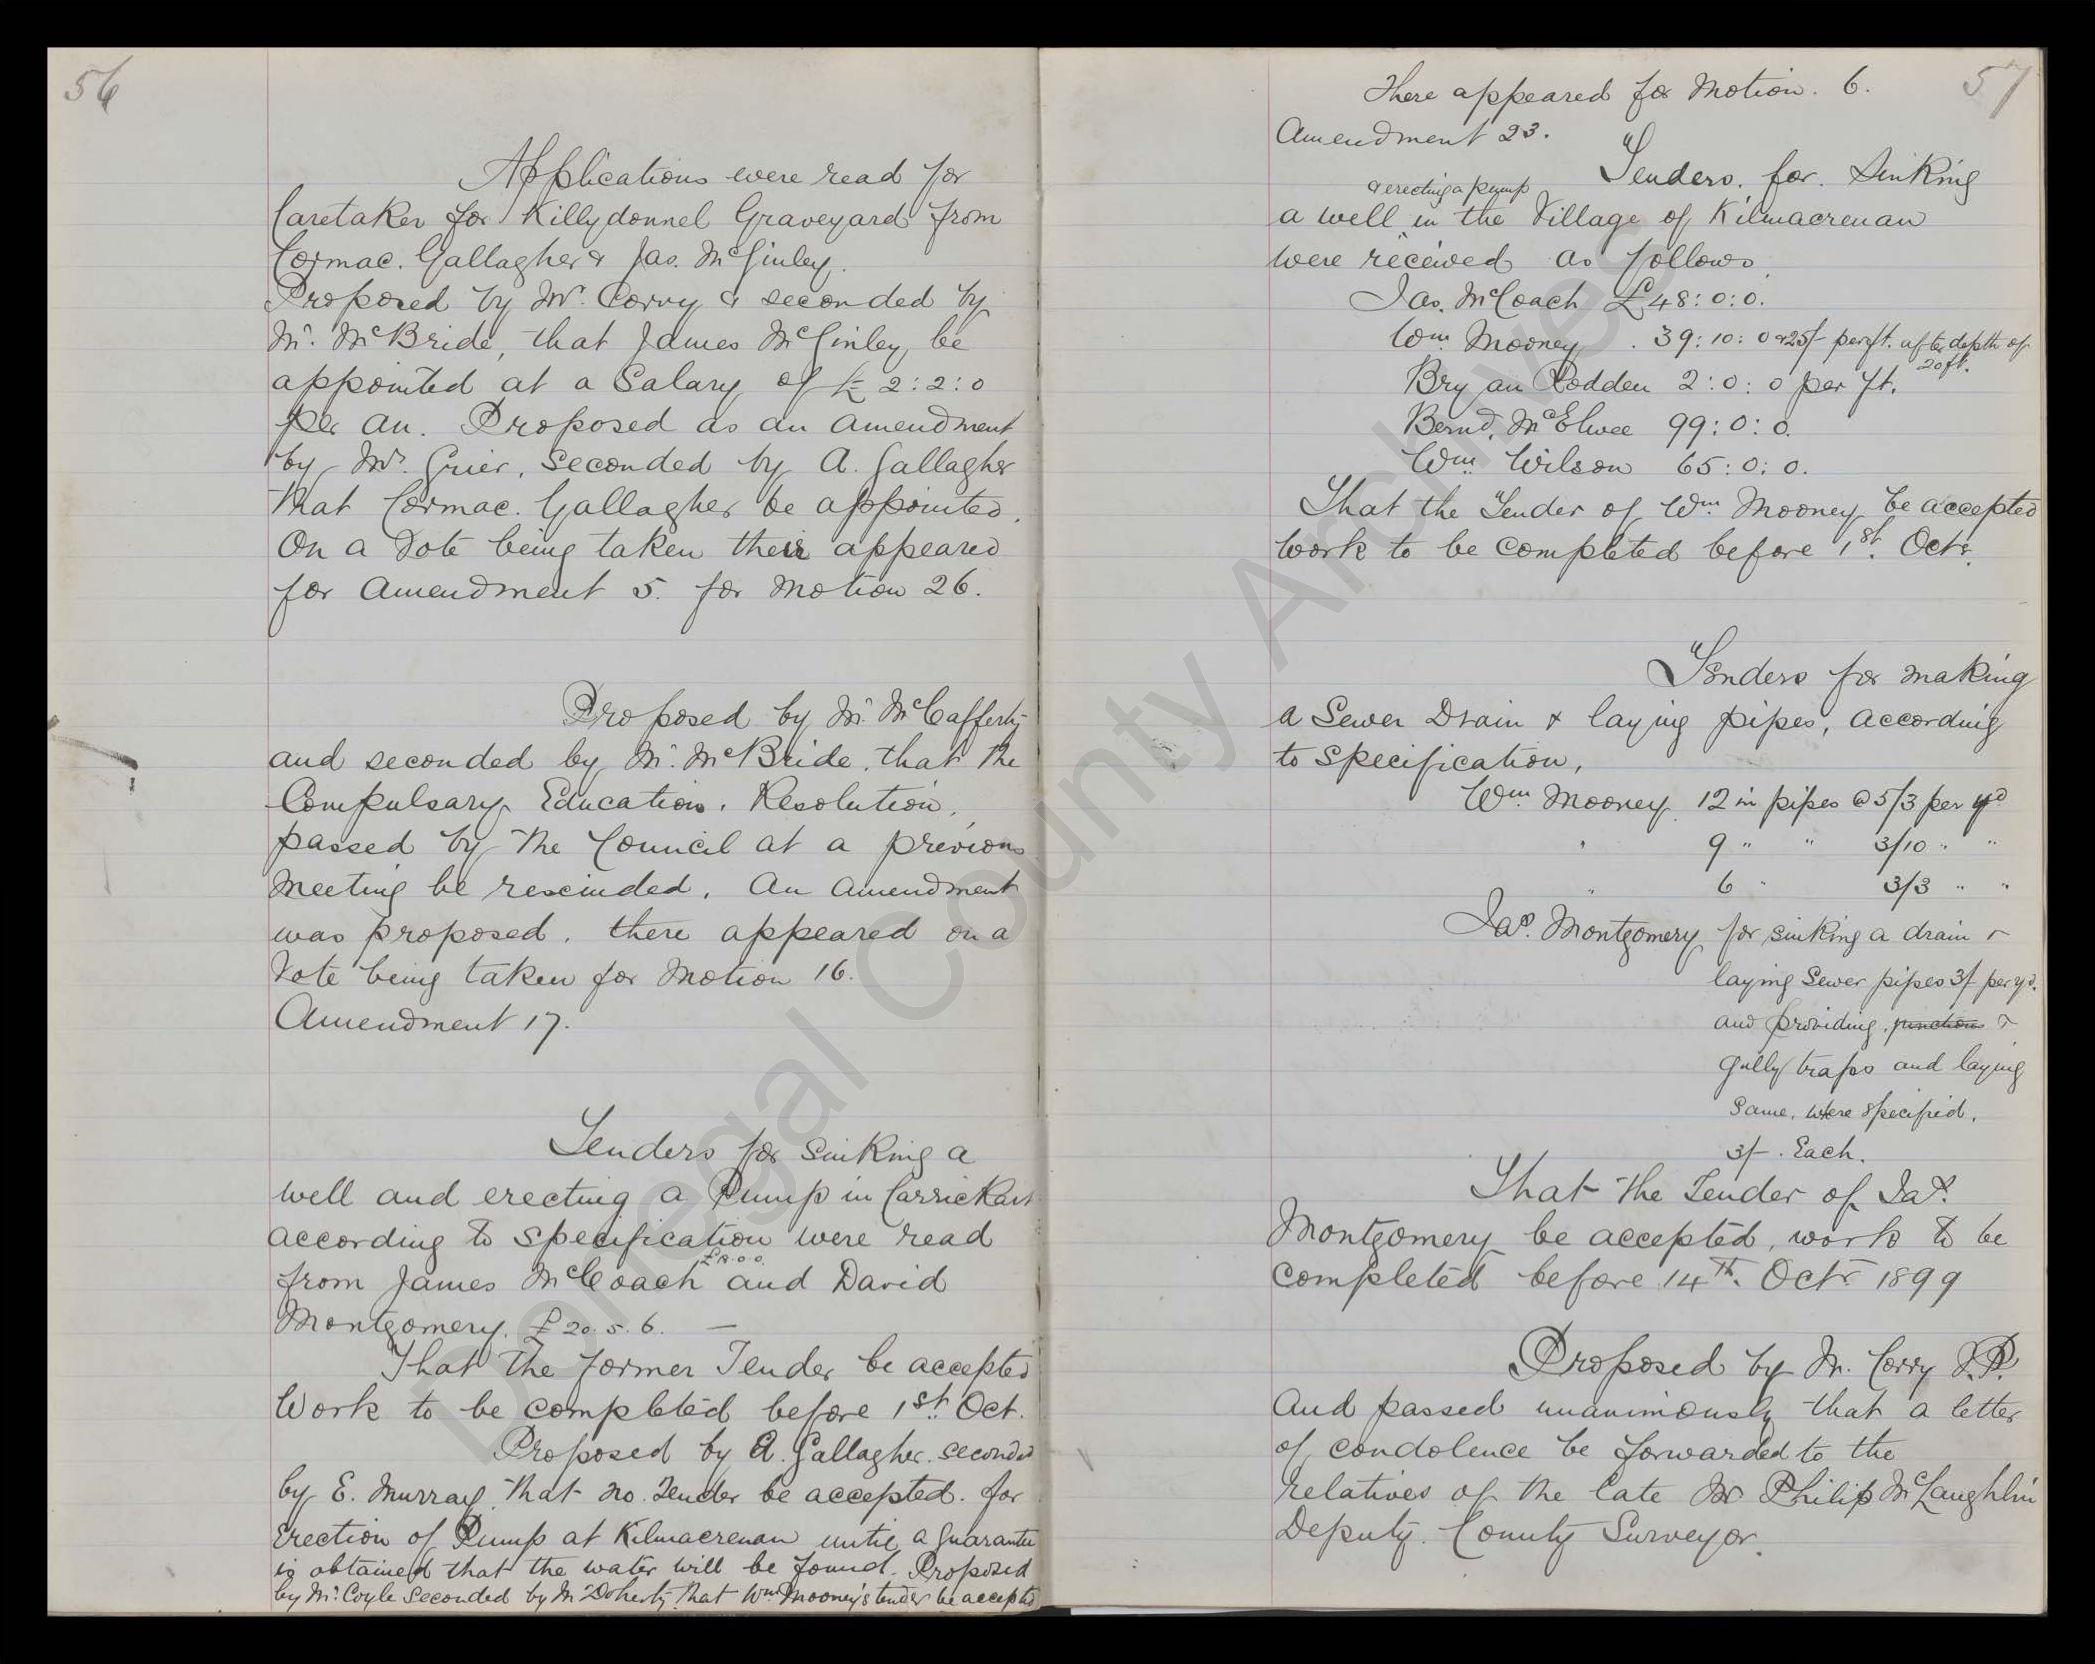 56
Applications were read for
Caretaker for Killydonnel Graveyard from
Cormac. Gallagher & Jas. McGinley.
Proposed by Mr. Corry & seconded by
Mr. McBride, that James McGinley be
appointed at a Salary of £ 2:2:0
per an. Proposed as an amendment
by Mr. Grier, seconded by A. Gallagher
that Cormac. Gallagher be appointed.
On a Vote being taken their appeared
for Amendment 5. for Motion 26.
Proposed by Mr. McCafferty
and seconded by Mr. McBride, that the
Compulsary Education. Resolution,
passed by the Council at a previous
meeting be rescinded. An amendment
was proposed. there appeared on a
Vote being taken for Motion 16.
Amendment 17.
Tenders for sinking a
well and erecting a Pump in Carrickart
according to specification were read
from James McCoach and David
Montgomery. £ 20.5.6. —
That the former Tender be accepted
Work to be completed before 1st Oct.
Proposed by A. Gallagher. seconded
by E. Murray, that no. Tender be accepted. for
Erection of Pump at Kilmacrenan until a guarantee
is obtained that the water will be found. Proposed
by Mr. Coyle Seconded by Mr Doherty that Wm Mooney's tender be accepted
57
There appeared for Motion. 6.
Amendment 23.
Tenders. for. Sinking
& erecting a pump
a well in the Village of Kilmacrenan
were received as follows.
Jas. McCoach £48:0:0.
Wm Mooney . 39:10:0 & 25/ per ft. after depth of
20 ft.
Bryan Rodden 2:0:0 per ft.
Bernd. McElwee 99:0:0.
Wm Wilson 65:0:0.
That the Tender of Wm Mooney be accepted
work to be completed before 1st. Octr.
Tenders for making
a Sewer Drain & laying pipes, according
to specification,
Wm Mooney. 12 in pipes @ 5/3 per yd
" 9 " " 3/10 " "
" 6 " 3/3 " "
Jas. Montgomery for sinking a drain &
laying Sewer pipes 3/- per yd.
and providing. junctions &
gully traps and laying
same, where specified.
3/- . Each.
That the Tender of Jas.
Montgomery be accepted, work to be
completed before 14th. Octr 1899
Proposed by Mr. Corry J.P.
and passed unanimously that a letter
of condolence be forwarded to the
relatives of the late Mr Philip McLaughlin
Deputy. County Surveyor.
Donegal County Archives